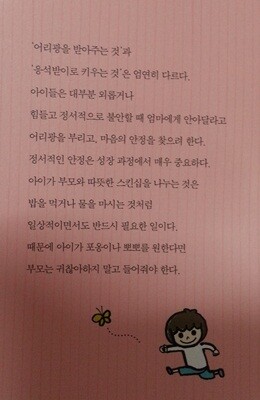 '어리광을 받아주는 것'과
'응석받이로 키우는 것'은 엄연히 다르다.
아이들은 대부분 외롭거나
힘들고 정서적으로 불안할 때 엄마에게 안아달라고
어리광을 부리고, 마음의 안정을 찾으려 한다.
정서적인 안정은 성장 과정에서 매우 중요하다.
아이가 부모와 따뜻한 스킨십을 나누는 것은
밥을 먹거나 물을 마시는 것처럼
일상적이면서도 반드시 필요한 일이다.
때문에 아이가 포옹이나 뽀뽀를 원한다면
부모는 귀찮아하지 말고 들어줘야 한다.